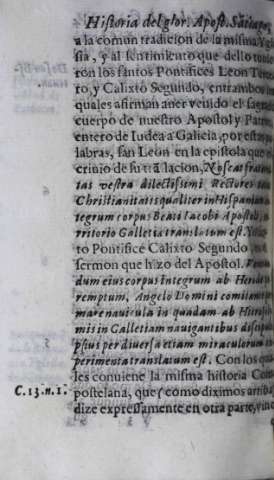 Historia del glor. Apost. Santiago,
a la comun tradicion de la misma Ygle
sia, y al sentimiento que dello tuuie
rõ los santos Pontifices Leon Terce
ro, y Calixto Segundo, entrambos los
quales afirman auer venido el sagra
cuerpo de nuestro Apostol y Patrõ
entero de Iudea a Galicia, por estas pa
labras, san Leon en la epistola que
criuio de su trãslacion, Noscat frater
tas vestra dilectissimi Rectores to
Christianitatis qualiter in Hispaniam
tegrum corpus Beati Iacobi Apostoli
rritorio Galletia translatum est. Y
to Pontifice Calixto Segundo
sermon que hizo del Apostol.
dum eius corpus integrum ab Herode
remptum, Angelo Domini comitante
mare nauicula in quadam ab Hierosoly
mis in Galletiam nauigantibus discipulis
ipsius per diuersa etiam miraculorum ex
perimenta translatum est. Con los qua
les conuiene la misma historia Com
postelana, que (como diximos arriba)
C. 13. n. 1.
dize expressamente en otra parte,